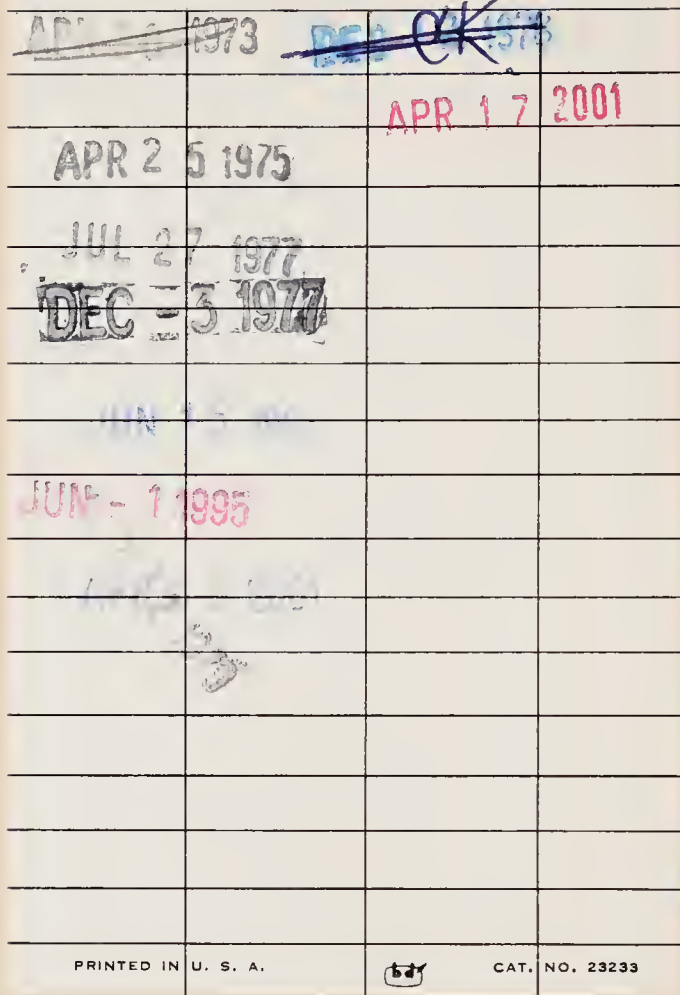 1973 DEC CK
APR 17 2001
APR 25 1975
JUL 27 1977
DEC - 3 1977
JUN
JUN - 1 1995
PRINTED IN U. S. A. bdr CAT. NO. 23233